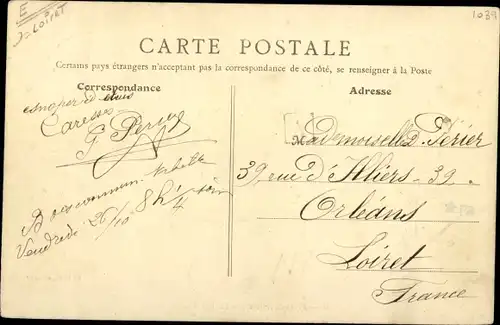 E
LOIRET
1039
CARTE POSTALE
Certains pays étrangers n'acceptant pas la correspondance de ce côté, se renseigner à la Poste
Correspondance
Caresses
Vendredi 26/10 8h 1/4 soir
Adresse
Mademoiselle D. Périer
39, rue d'Illiers - 39 -
Orléans
Loiret
France